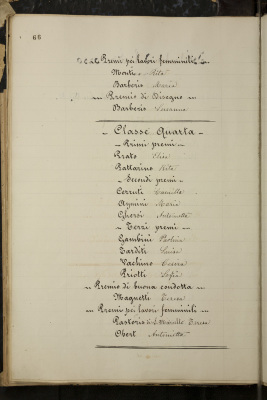 66
Premii pei lavori femminili
Monti Rita
Barberis Maria
Premio di Disegno
Barberis Susanna
Classe Quarta
Primi premi
Prato Elisa
Rattarino Rita
Secondi premi
Cerruti Camilla
Azzini Maria
Ghersi Antonietta
Terzi premi
Gambini Paolina
Tarditi Luisa
Vachino Teresa
Priotti Sofia
Premio di buona condotta
Maquetti Teresa
Premi pei lavori femminili
Pastoris Teresa
Obert Antonietta